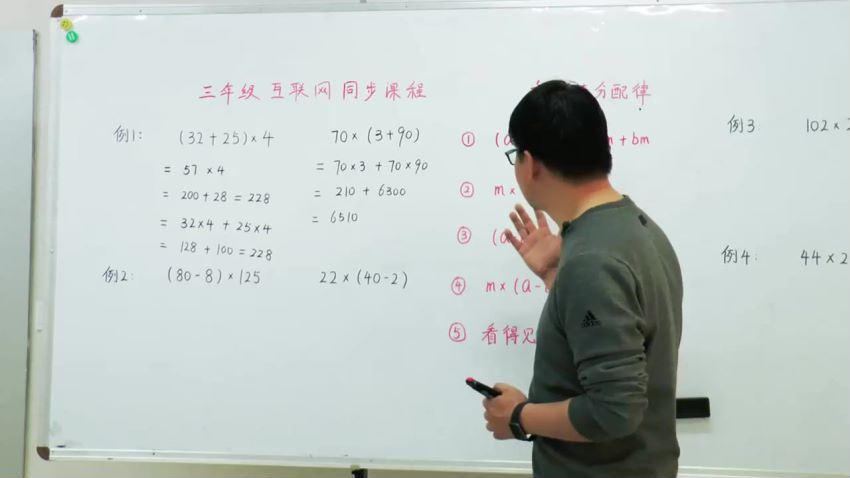 三年级 互联网 同步课程
分配律
例1:
(32+25)×4
= 57 ×4
= 200+28 = 228
= 32×4 + 25×4
= 128+100=228
70×(3+90)
= 70×3 + 70×90
= 210 + 6300
= 6510
例2:
(80-8)×125
22×(40-2)
① (a + bm
② m×
③ (a
④ m×(a-
⑤ 看得见
例3
102×2
例4:
44×2
adidas